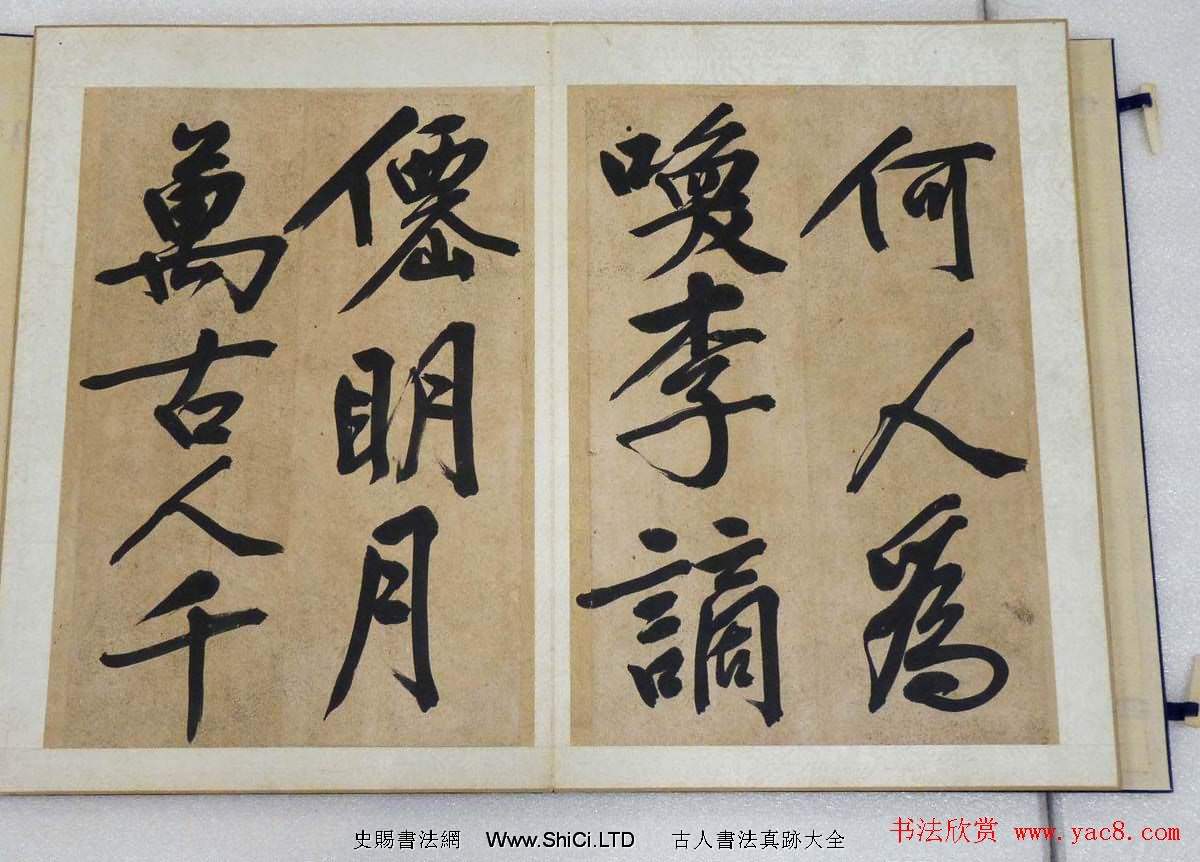 何人爲
喚李謫
僊明月
萬古人千
史賜書法網 Www.ShiCi.LTD 古人書法真跡大全
书法欣赏 www.yac8.com